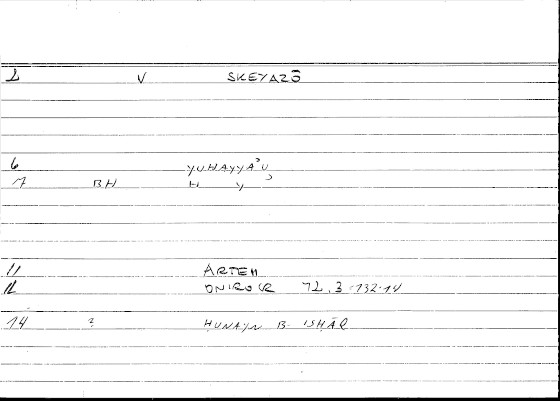 2 V SKEYAZŌ
6 YUHAYYAʾU
7 BH H Y ʾ
11 ARTEM
12 ONIROCR 72.3-132.14
14 ? ḤUNAYN B. ISḤĀQ